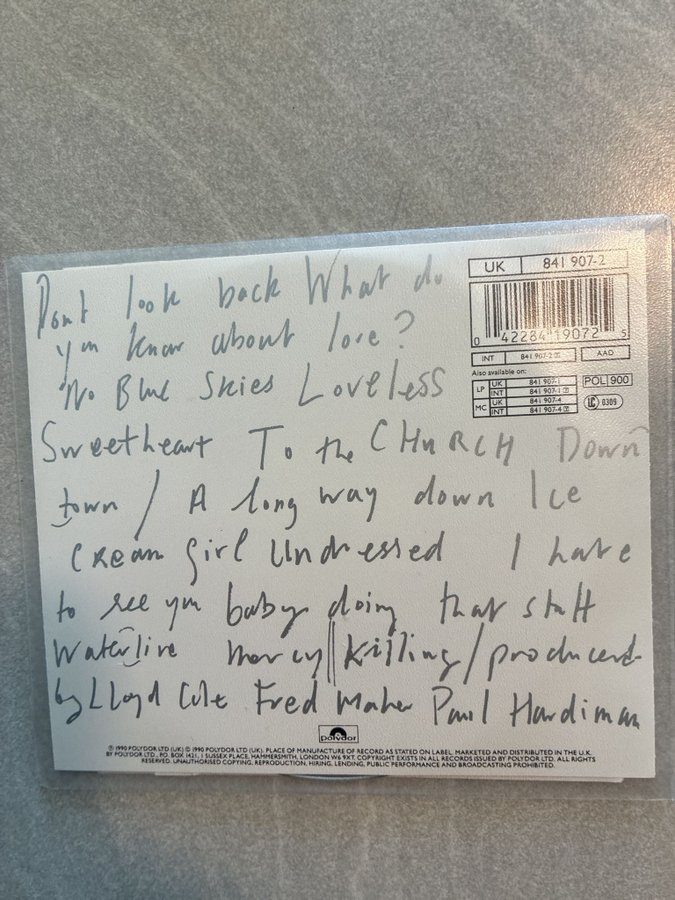 UK 841 907-2
0 42284 19072 5
INT 841 907-2
AAD
Also available on:
LP UK 841 907-1
INT 841 907-1
MC UK 841 907-4
INT 841 907-4
POL 900
LC 0309
Dont look back What do
you know about love?
No Blue Skies Loveless
Sweetheart To the CHURCH Down
town / A long way down Ice
Cream girl Undressed I hate
to see you baby doing that stuff
Waterline mercy || killing / produced
by Lloyd Cole Fred Maher Paul Hardiman
polydor
℗ 1990 POLYDOR LTD (UK) © 1990 POLYDOR LTD (UK). PLACE OF MANUFACTURE OF RECORD AS STATED ON LABEL. MARKETED AND DISTRIBUTED IN THE U.K.
BY POLYDOR LTD., P.O. BOX 1421, 1 SUSSEX PLACE, HAMMERSMITH, LONDON W6 9XT. COPYRIGHT EXISTS IN ALL RECORDS ISSUED BY POLYDOR LTD. ALL RIGHTS
RESERVED. UNAUTHORISED COPYING, REPRODUCTION, HIRING, LENDING, PUBLIC PERFORMANCE AND BROADCASTING PROHIBITED.